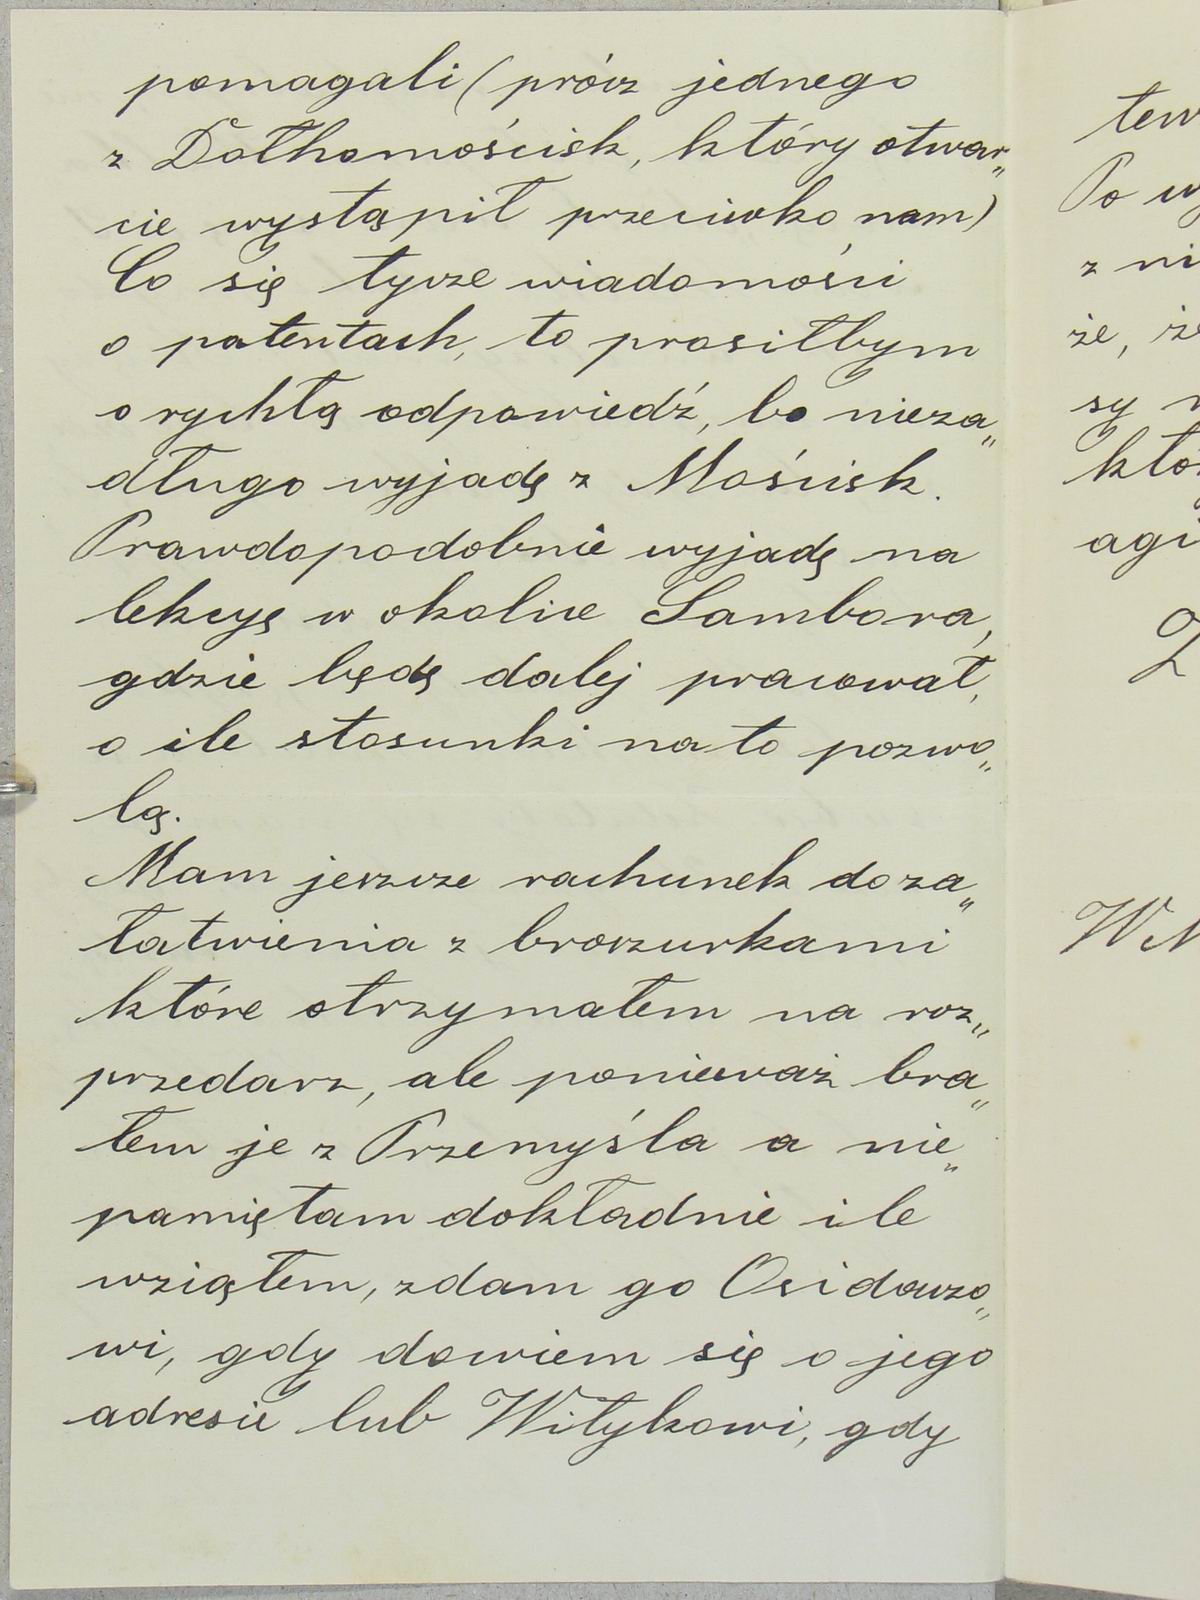 pomagali (prócz jednego
z Dołhomościsk, który otwar„
cie wystąpił przeciwko nam)
Co się tycze wiadomości
o patentach, to prosiłbym
o rychłą odpowiedź, bo nieza„
długo wyjadę z Mościsk.
Prawdopodobnie wyjadę na
lekcyę w okolice Sambora,
gdzie będę dalej pracował,
o ile stosunki na to pozwo„
lą.
Mam jeszcze rachunek do za„
łatwienia z broszurkami
które otrzymałem na roz„
przedarz, ale ponieważ bra„
łem je z Przemyśla a nie„
pamiętam dokładnie ile
wziąłem, zdam go Osidaczo„
wi, gdy dowiem się o jego
adresie lub Witykowi, gdy
Po
z ni
że, że
sy
agi